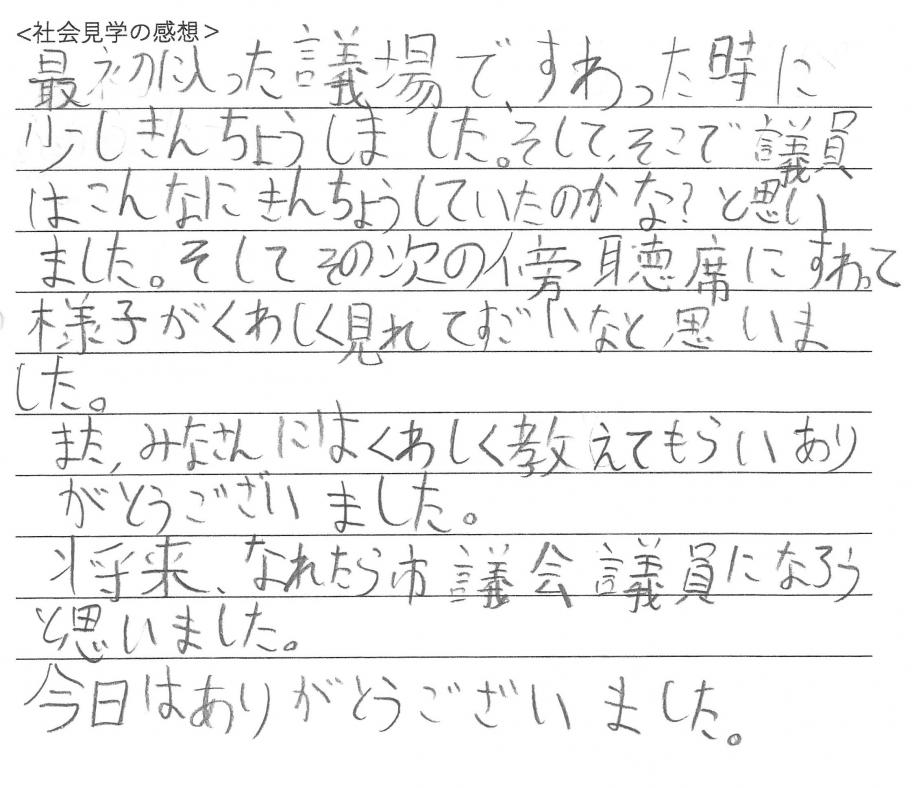 <社会見学の感想>
最初に入った議場ですわった時に
少しきんちょうしました。そして、そこで議員
はこんなにきんちょうしていたのかな？と思い
ました。そしてその次の傍聴席にすわって
様子がくわしく見れてすごいなと思いま
した。
また、みなさんにはくわしく教えてもらいあり
がとうございました。
将来、なれたら市議会議員になろう
と思いました。
今日はありがとうございました。